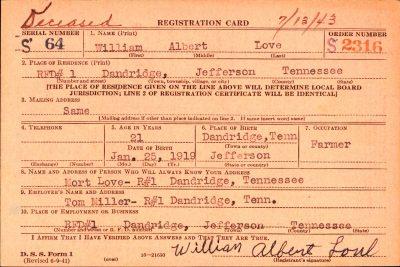 Deceased REGISTRATION CARD 7/13/43
SERIAL NUMBER 1. NAME (Print) ORDER NUMBER
S 64 William Albert Love S 2316
(First) (Middle) (Last)
2. PLACE OF RESIDENCE (Print)
RFD# 1 Dandridge, Jefferson Tennessee
(Number and street) (Town, township, village, or city) (County) (State)
[THE PLACE OF RESIDENCE GIVEN ON THE LINE ABOVE WILL DETERMINE LOCAL BOARD
JURISDICTION; LINE 2 OF REGISTRATION CERTIFICATE WILL BE IDENTICAL]
3. MAILING ADDRESS
Same
[Mailing address if other than place indicated on line 2. If same insert word same]
4. TELEPHONE 5. AGE IN YEARS 6. PLACE OF BIRTH 7. OCCUPATION
21 Dandridge,Tenn
DATE OF BIRTH (Town or county) Farmer
Jan. 23, 1919 Jefferson
(Exchange) (Number) (Mo.) (Day) (Yr.) (State or country)
8. NAME AND ADDRESS OF PERSON WHO WILL ALWAYS KNOW YOUR ADDRESS
Mort Love- R#1 Dandridge, Tennessee
9. EMPLOYER'S NAME AND ADDRESS
Tom Miller- R#1 Dandridge, Tenn.
10. PLACE OF EMPLOYMENT OR BUSINESS
RFD#1 Dandridge, Jefferson Tennessee
(Number and street or R. F. D. number) (Town) (County) (State)
I AFFIRM THAT I HAVE VERIFIED ABOVE ANSWERS AND THAT THEY ARE TRUE.
D. S. S. Form 1 William Albert Love
(Revised 6-9-41) 16—21630 (Registrant's signature)